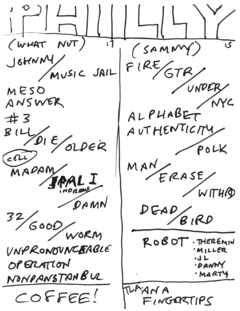 PHILLY
(WHAT NUT) 17
JOHNNY/
MUSIC JAIL
MESO
ANSWER
#3
BILL/
DIE/OLDER
CELL
MADAM/
PALI
DAMN
32/
GOOD/
WORM
UNPRONOUNCEABLE
OPERATION
NONPANSTANBUL
COFFEE!
(SAMMY) 15
FIRE/
GTR/
UNDER/
NYC
ALPHABET
AUTHENTICITY/
POLK
MAN/
ERASE/
WITH
DEAD/
BIRD
ROBOT · THEREMIN
· MILLER
· JL
· DANNY
· MARTY
ANA
FINGERTIPS